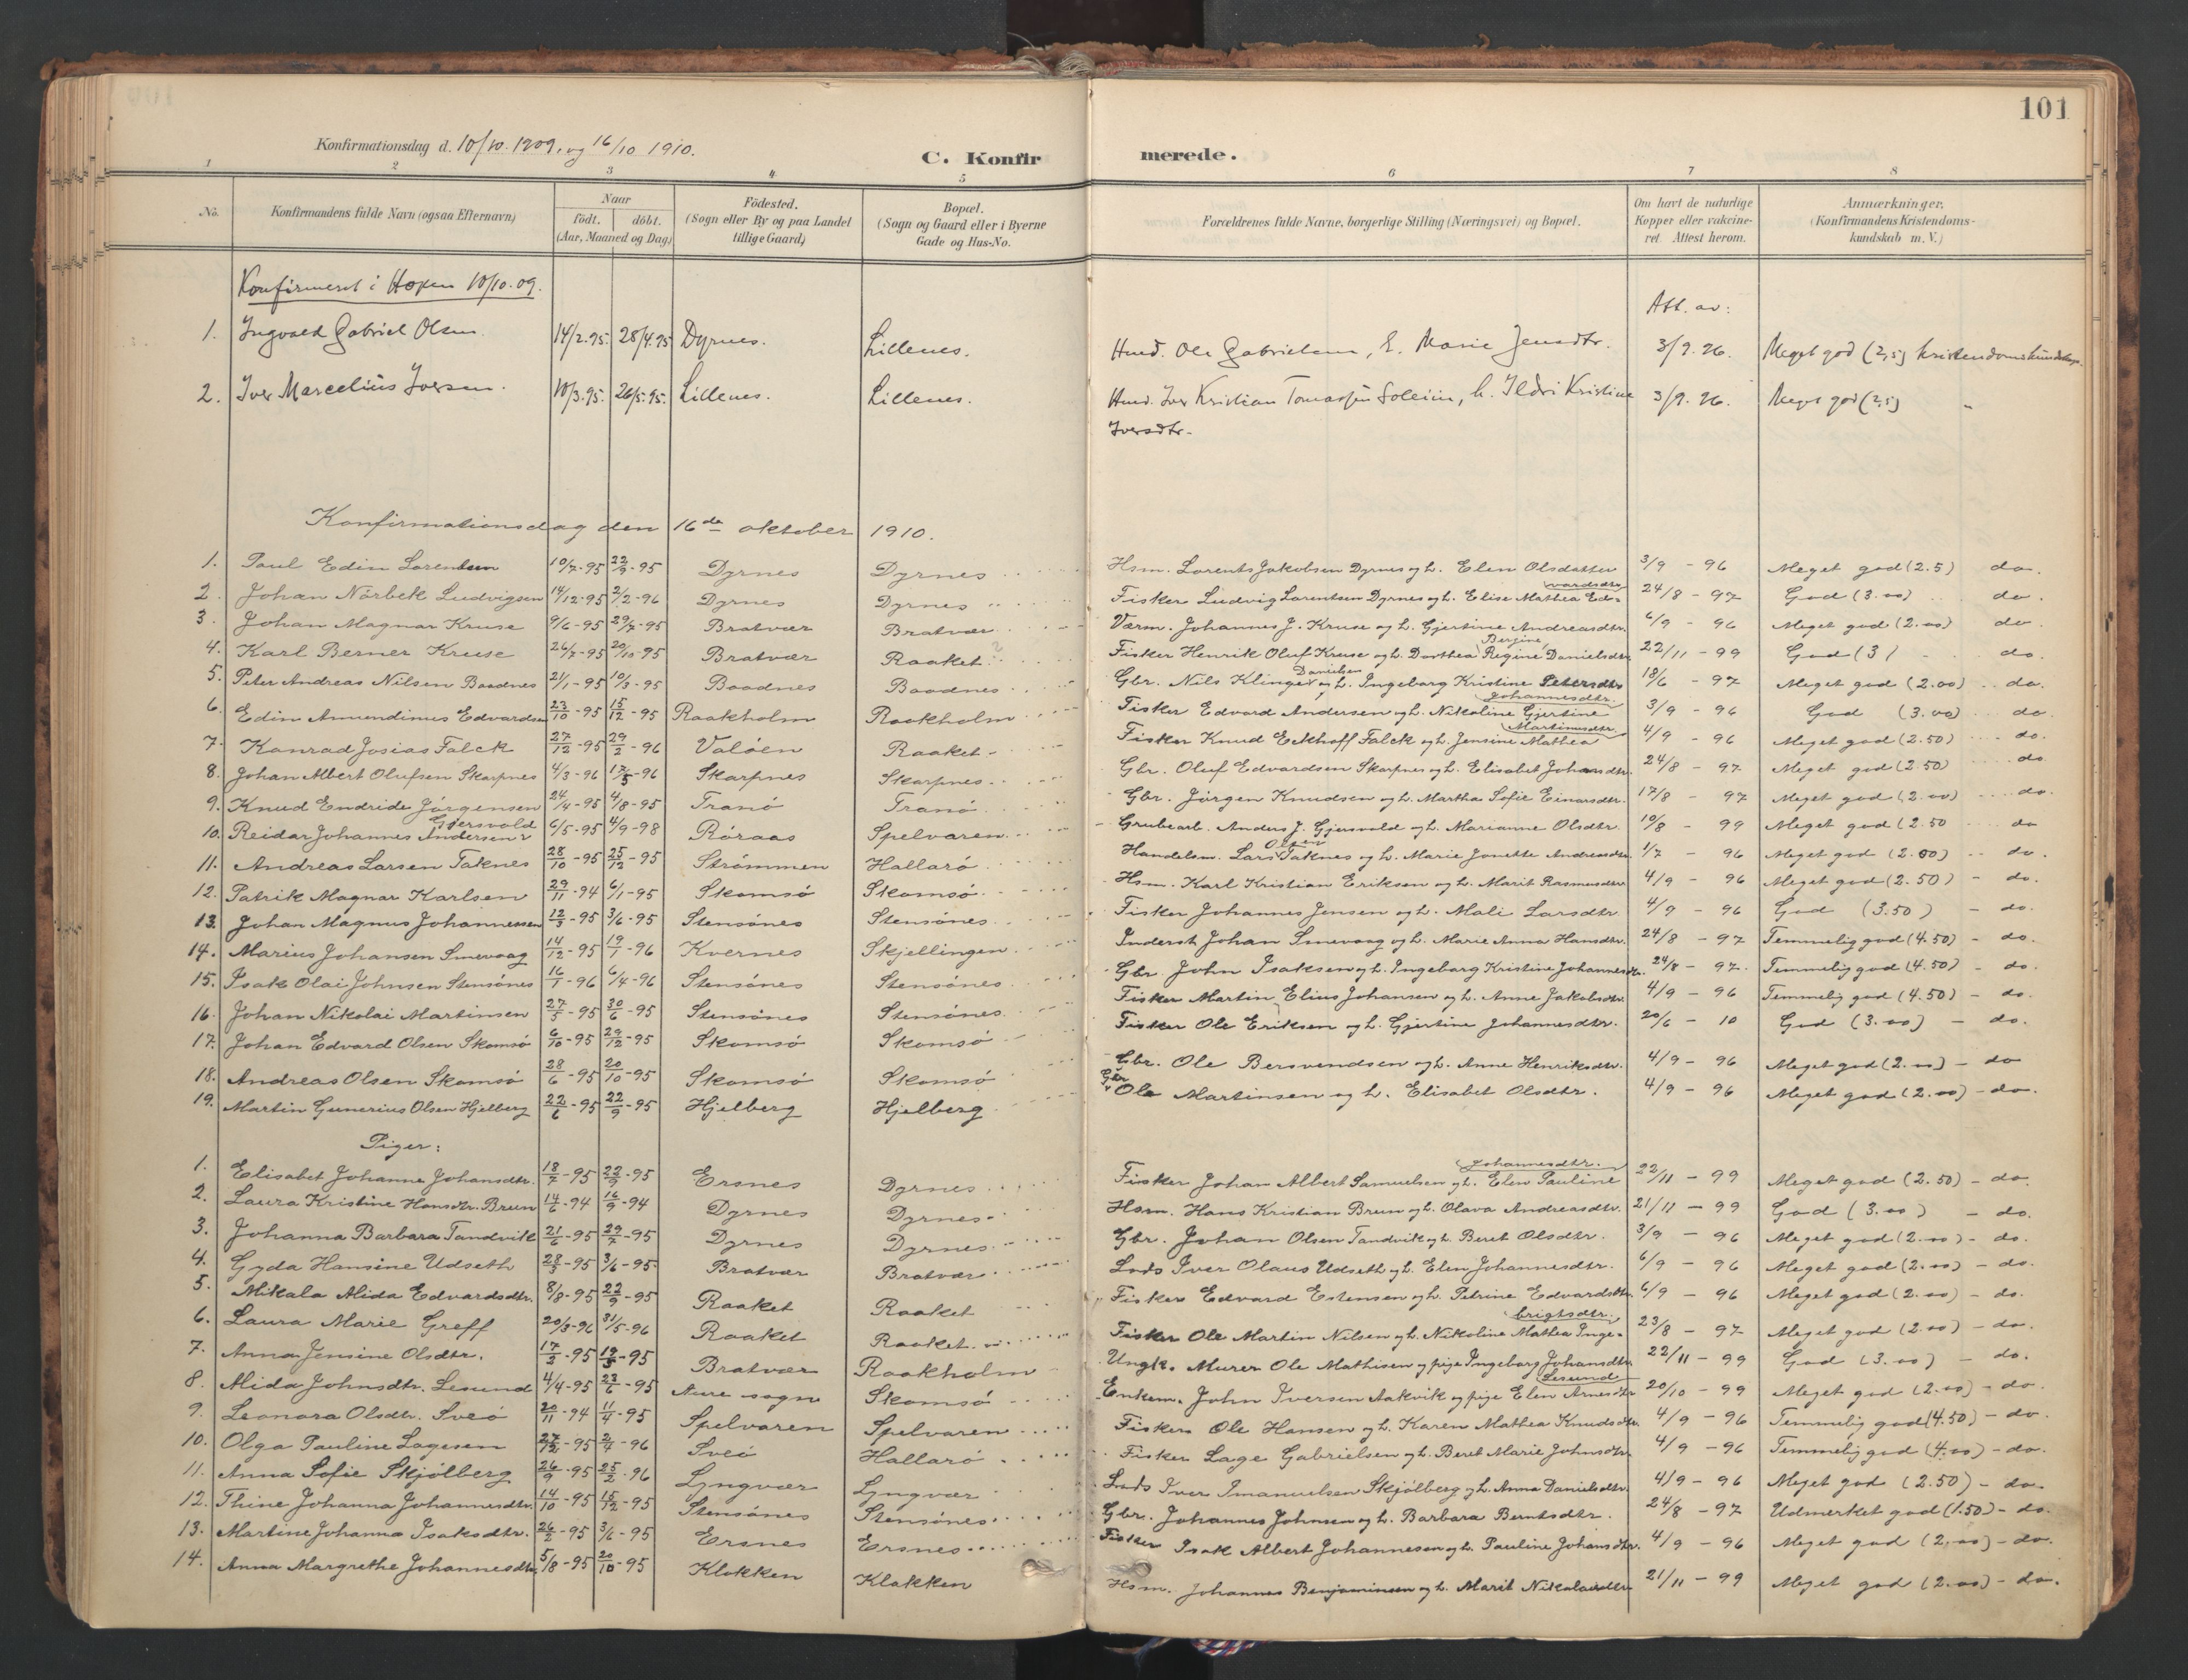 101
Konfirmationsdag d. 10/10. 1909. og 16/10 1910.
C. Konfirmerede.
1 2 3 4 5 6 7 8
No. Konfirmandens fulde Navn (ogsaa Efternavn) Naar født. døbt. (Aar, Maaned og Dag) Fødested. (Sogn eller By og paa Landet tillige Gaard) Bopæl. (Sogn og Gaard eller i Byerne Gade og Hus-No. Forældrenes fulde Navne, borgerlige Stilling (Næringsvei) og Bopæl. Om havt de naturlige Kopper eller vakcineret. Attest herom. Anmærkninger, (Konfirmandens Kristendomskundskab m. V.)
Konfirmeret i Hopen 10/10.09.
Att. av:
1. Ingvald Gabriel Olsen 14/2.95. 28/4.95 Dyrnes. Lillenes. Hmd. Ole Gabrielsen, h. Marie Jensdtr. 3/9. 96. Meget god (2,5) Kristendomskundskap.
2. Iver Marcelius Iversen. 10/3.95. 26/5.95. Lillenes. Lillenes. Hmd. Iver Kristian Tomassen Soleim, h. Ildri Kristine Iversdtr. 3/9. 96. Meget god (2,5) "
Konfirmationsdag den 16de oktober 1910.
1. Paul Edin Lorentsen 10/7-95 22/9-95 Dyrnes Dyrnes Hsm. Lorents Jakobsen Dyrnes og h. Elen Olsdatter 3/9 - 96 Meget god (2.5) do.
2. Johan Nørbek Ludvigsen 14/12-95 2/2-96 Dyrnes Dyrnes Fisker Ludvig Lorentsen Dyrnes og h. Elise Mathea Edvardsdtr 24/8 - 97 God (3.00) do.
3. Johan Magnar Kruse 9/6-95 29/7-95 Bratvær Bratvær Værm. Johannes J. Kruse og h. Gjertine Andreasdtr. 6/9 - 96 Meget god (2.00) do.
4. Karl Berner Kruse 26/7-95 20/10-95 Bratvær Raaket ? Fisker Henrik Oluf Kruse og h. Dorthea Bergine Regine Danielsdtr 22/11 - 99 God (3) do.
5. Peter Andreas Nilsen Baadnes 21/1-95 10/3-95 Baadnes Baadnes Gbr. Nils Klinge Danielsen og h. Ingeborg Kristine Petersdtr 18/6 - 97 Meget god (2.00) do.
6. Edin Amundinus Edvardsen 23/10-95 15/12-95 Raakholm Raakholm Fisker Edvard Andersen og h. Nikoline Gjertine Johannesdtr. 3/9 - 96 God (3.00) do.
7. Konrad Josias Falck 27/12-95 29/2-96 Valøen Raaket Fisker Knud Eckhoff Falck og h. Jensine Mathea Martinusdtr. 4/9 - 96 Meget god (2.50) do.
8. Johan Albert Olufsen Skarpnes 4/3-96 17/5-96 Skarpnes Skarpnes Gbr. Oluf Edvardsen Skarpnes og h. Elisabet Johansdtr 24/8 - 97 Meget god (2.50) do
9. Knud Endride Jørgensen 24/4-95 4/8-95 Tranø Tranø Gbr. Jørgen Knudsen og h. Martha Sofie Einarsdtr. 17/8 - 97 Meget god (2.00) do.
10. Reidar Johannes Andersen Gjersvold 6/5-95 4/9-98 Røraas Spelvaren Grubearb. Anders J. Gjersvold og h. Marianne Olsdtr. 10/8 - 99 Meget god (2.50 do
11. Andreas Larsen Taknes 28/10-95 25/12-95 Strømmen Hallarø Handelsm. Lars Olsen Taknes og h. Marie Jonette Andreasdtr 1/7 - 96 Meget god (2.00) do.
12. Patrik Magnar Karlsen 29/11-94 6/1-95 Skomsø Skomsø Hsm. Karl Kristian Eriksen og h. Marit Rasmusdtr 4/9 - 96 Meget god (2.50) - do.
13. Johan Magnus Johannessen 12/3-95 3/6-95 Stensønes Stensønes Fisker Johannes Jensen og h. Mali Larsdtr. 4/9 - 96 God (3.50) - do.
14. Marius Johansen Smevaag 14/12-95 19/1-96 Kvernes Skjellingen Inderst Johan Smevaag og h. Marie Anna Hansdtr. 24/8 - 97 Temmelig god (4.50) - do.
15. Isak Olai Johnsen Stensønes 16/1-96 6/4-96 Stensønes Stensønes Gbr. John Isaksen og h. Ingeborg Kristine Johannesdtr. 24/8 - 97. Temmelig god (4.50) - do.
16. Johan Nikolai Martinsen 27/5-95 30/6-95 Stensønes Stensønes Fisker Martin Elius Johansen og h. Anne Jakobsdtr. 4/9 - 96 Temmelig god (4.50) - do.
17. Johan Edvard Olsen Skomsø 6/10-95 29/12-95 Skomsø Skomsø Fisker Ole Eriksen og h. Gjertine Johannesdtr. 20/6 - 10 God (3.00) - do.
18. Andreas Olsen Skomsø 28/6-95 20/10-95 Skomsø Skomsø Gbr. Ole Bersvendsen og h. Anne Henriksdtr. 4/9 - 96 Meget god (2.00) - do
19. Martin Gunerius Olsen Hjelberg 22/6-95 22/9-95 Hjelberg Hjelberg Gbr Ole Martinsen og h. Elisabet Olsdtr. 4/9 - 96 Meget god (2.00) - do.
Piger:
1. Elisabet Johanne Johansdtr. 18/7-95 22/9-95 Ersnes Dyrnes Fisker Johan Albert Samuelsen og h. Elen Pauline Johannesdtr. 22/11 - 99 Meget god (2.50) - do.
2. Laura Kristine Hansdtr. Brun 14/6-94 16/9-94 Dyrnes Dyrnes Hsm. Hans Kristian Brun og h. Olava Andreasdtr. 21/11 - 99 God (3.00) - do.
3. Johanna Barbara Tandvik 21/6-95 29/7-95 Dyrnes Dyrnes Gbr. Johan Olsen Tandvik og h. Beret Olsdtr. 3/9 - 96 Meget god (2.00) - do.
4. Gyda Hansine Udseth 28/3-95 3/6-95 Bratvær Bratvær Lods Iver Olaus Udseth og h. Elen Johannesdtr. 6/9 - 96 Meget god (2.00) - do.
5. Mikala Alida Edvardsdtr. 8/8-95 22/9-95 Raaket Raaket Fisker Edvard Estensen og h. Petrine Edvardsdtr 6/9 - 96 Meget god (2.00) - do.
6. Laura Marie Greff 20/3-96 31/5-96 Raaket Raaket Fisker Ole Martin Nilsen og h. Nikoline Mathea Ingebrigtsdtr. 23/8 - 97 Meget god (2.00) - do.
7. Anna Jensine Olsdtr. 17/2-95 19/5-95 Bratvær Raakholm Ungk. Murer Ole Mathisen og pige Ingeborg Johansdtr 22/11 - 99 God (3.00) - do.
8. Alida Johnsdtr. Lesund 4/4-95 23/6-95 Aure sogn Skomsø Enkem. John Iversen Aakvik og pige Elen Arnesdtr Lesund 20/10 - 99 Meget god (2.00) - do.
9. Leonora Olsdtr. Sveø 20/11-94 11/4-95 Spelvaren Spelvaren Fisker Ole Hansen og h. Karen Mathea Knudsdtr. 4/9 - 96 Temmelig god (4.50) - do.
10. Olga Pauline Lagesen 27/12-95 2/4-96 Sveø Hallarø Fisker Lage Gabrielsen og h. Beret Marie Johnsdtr. 4/9 - 96 Temmelig god (4.00) - do.
11. Anna Sofie Skjølberg 26/9-95 25/2-96 Lyngvær Lyngvær Lods Iver Imanuelsen Skjølberg og h. Anna Danielsdtr. 4/9 - 96 Meget god (2.50) - do.
12. Thine Johanna Johannesdtr. 14/10-95 15/12-95 Stensønes Stensønes Gbr. Johannes Johnsen og h. Barbara Berntsdtr. 24/8 - 97 Udmerket god (1.50) - do.
13. Martine Johanna Isaksdtr. 26/2-95 3/6-95 Ersnes Ersnes Fisker Isak Albert Johannesen og h. Pauline Johansdtr. 4/9 - 96 Meget god (2.00) - do.
14. Anna Margrethe Johannesdtr. 5/8-95 20/10-95 Klokken Klakken Hsm. Johannes Benjaminsen og h. Marit Nikolaisdtr 21/11 - 99 Meget god (2.00) - do.